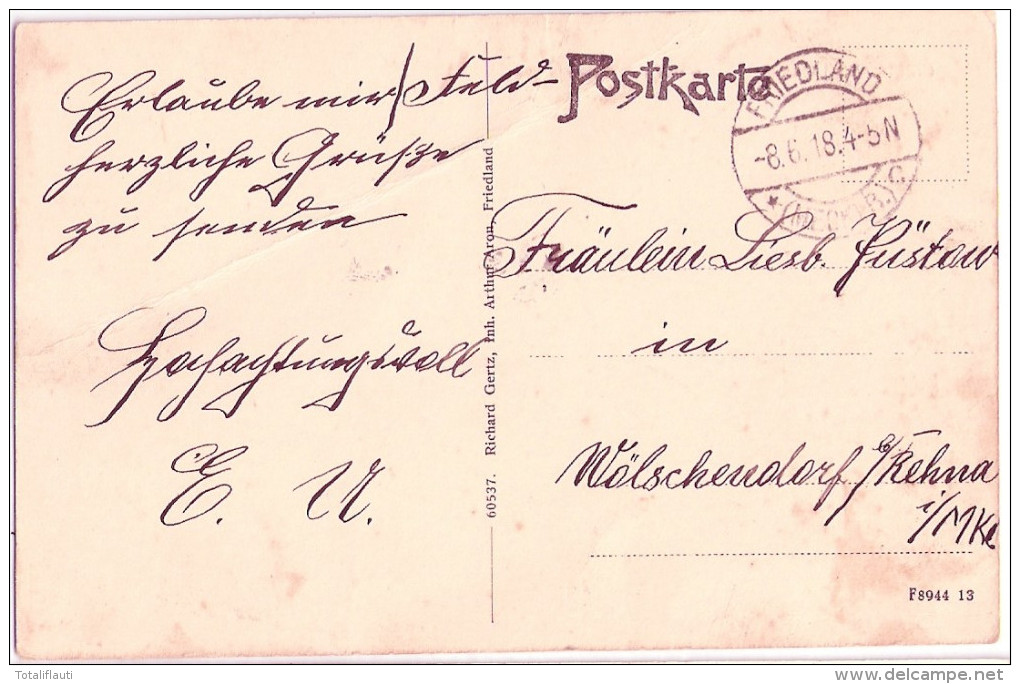 Erlaube mir / Feld-
herzliche Grüße
zu senden
Hochachtungsvoll
E. U.
60537. Richard Gertz, Inh. Arthur Aron, Friedland
Postkarte
FRIEDLAND
-8.6.18.4-5N
* (MECKLB.) c.
Fräulein Liesb.
in
Wölschendorf b/Rehna
i/Mkl
F8944 13
Totaliflauti
delcampe.net